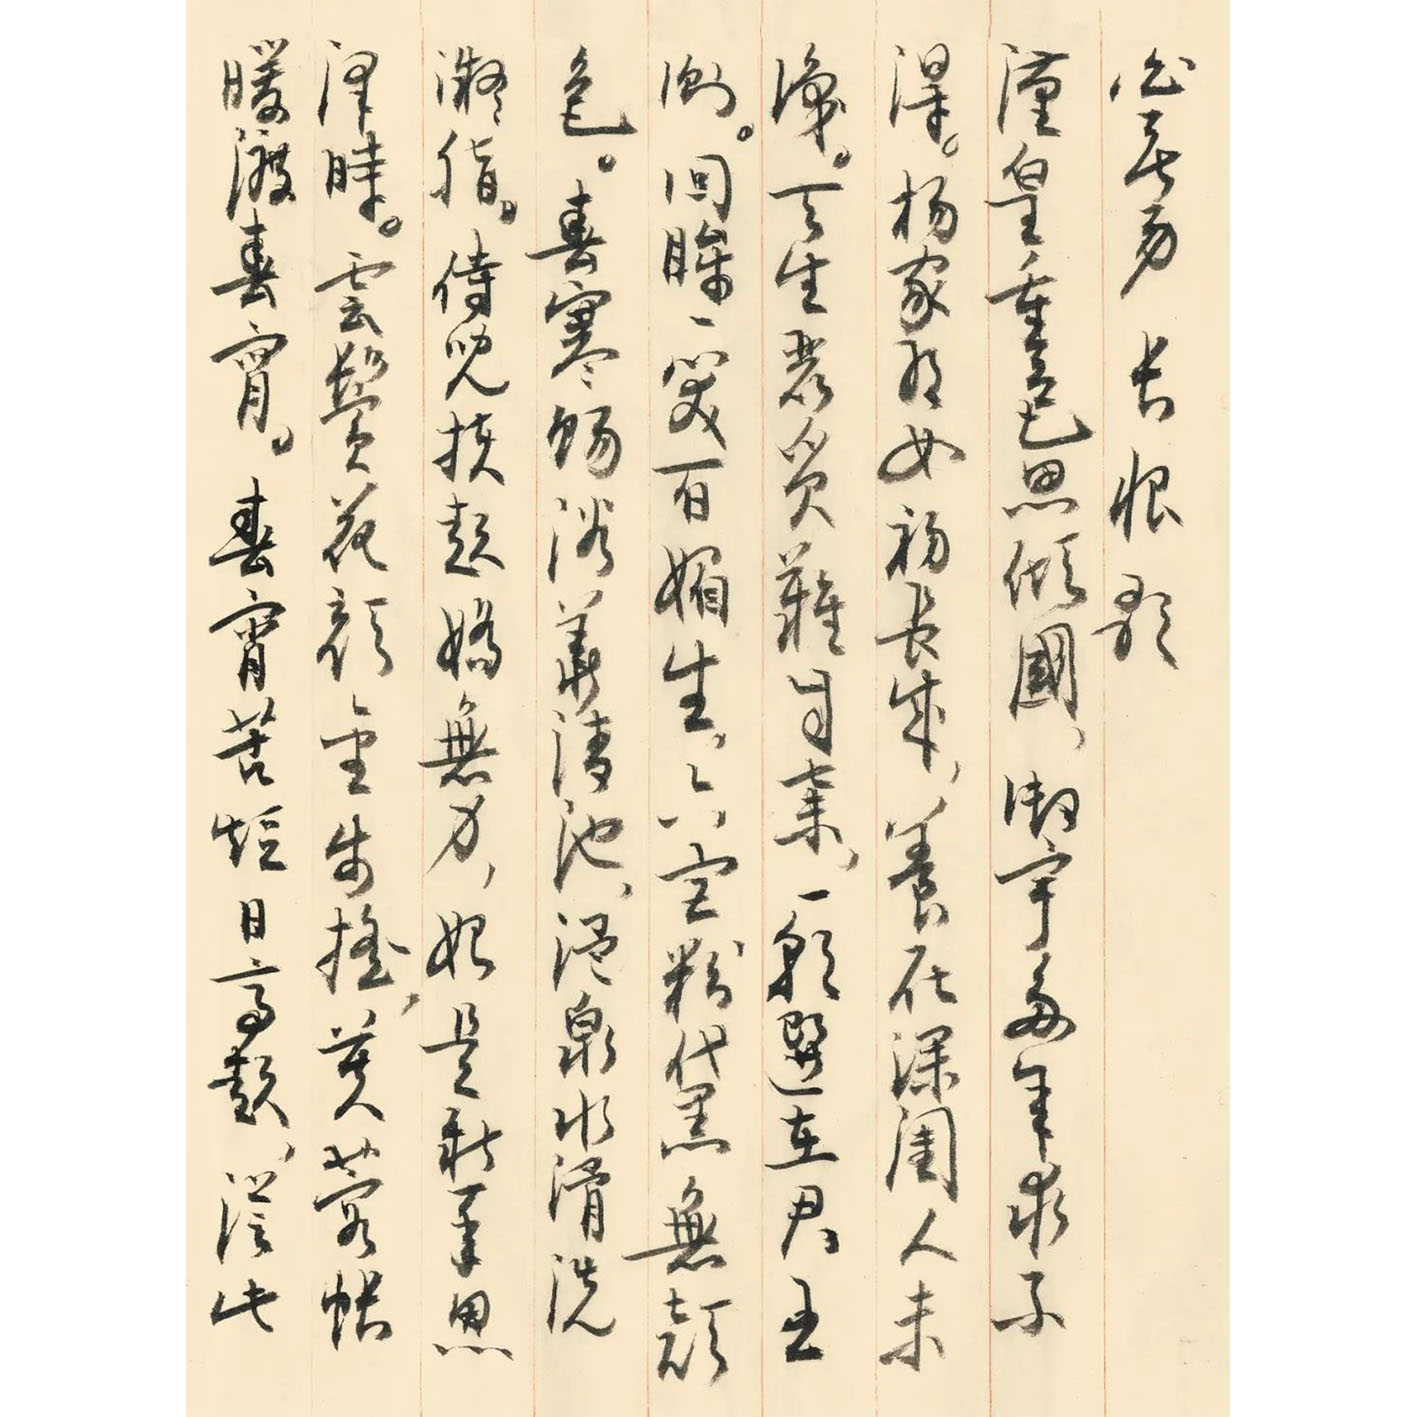 白居易 長恨歌
漢皇重色思傾國，御宇多年求不
得。楊家有女初長成，養在深閨人未
識。天生麗質難自棄，一朝選在君王
側。回眸一笑百媚生，六宮粉黛無顏
色。春寒賜浴華清池，溫泉水滑洗
凝脂。侍兒扶起嬌無力，始是新承恩
澤時。雲鬢花顏金步搖，芙蓉帳
暖渡春宵。春宵苦短日高起，從此